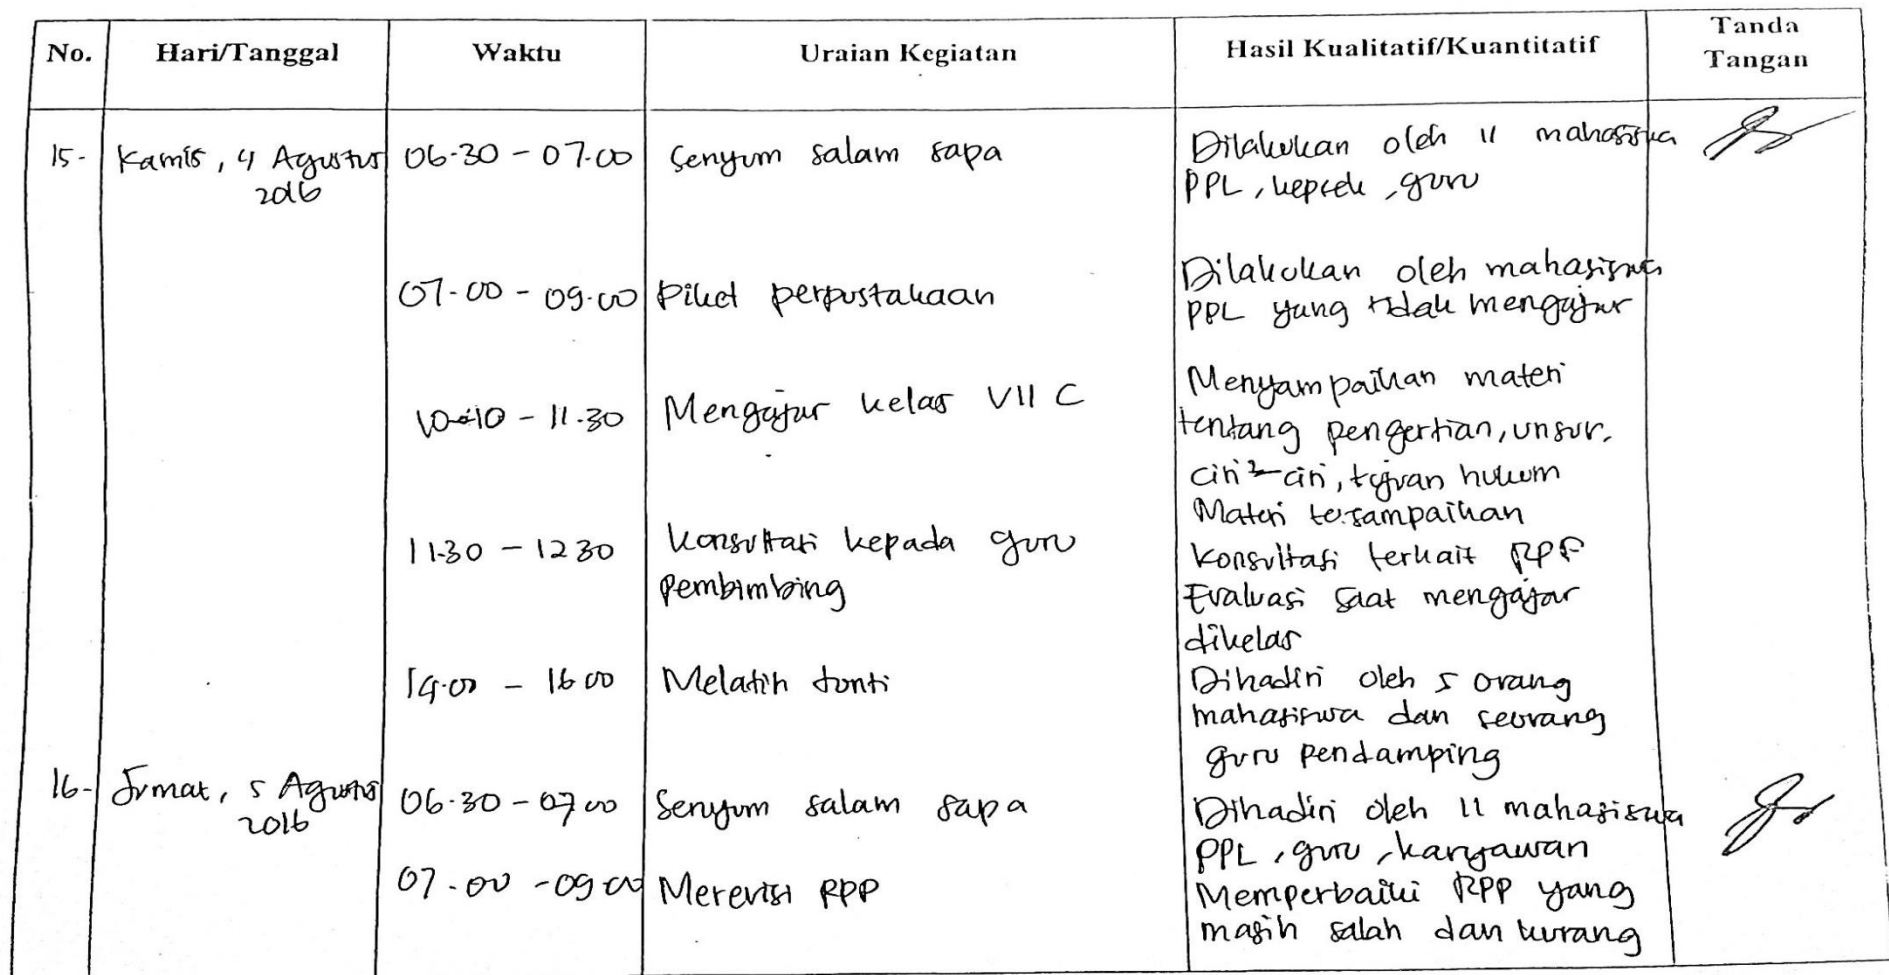 No. Hari/Tanggal Waktu Uraian Kegiatan Hasil Kualitatif/Kuantitatif Tanda Tangan
15- Kamis, 4 Agustus 2016 06.30 - 07.00 Senyum salam sapa Dilakukan oleh 11 mahasiswa
PPL, kepsek, guru
07.00 - 09.00 Piket perpustakaan Dilakukan oleh mahasiswa
PPL yang tidak mengajar
10.10 - 11.30 Mengajar kelas VII C Menyampaikan materi
tentang pengertian, unsur,
ciri2-ciri, tujuan hukum
Materi tersampaikan
11.30 - 12 30 Konsultasi kepada guru
pembimbing
Konsultasi terkait RPP
Evaluasi saat mengajar
dikelas
14.00 - 16 00 Melatih tonti Dihadiri oleh 5 orang
mahasiswa dan seorang
guru pendamping
16- Jumat, 5 Agustus 2016 06.30 - 07 00 Senyum salam sapa Dihadiri oleh 11 mahasiswa
PPL, guru, karyawan
07.00 - 09 00 Merevisi RPP Memperbaiki RPP yang
masih salah dan kurang